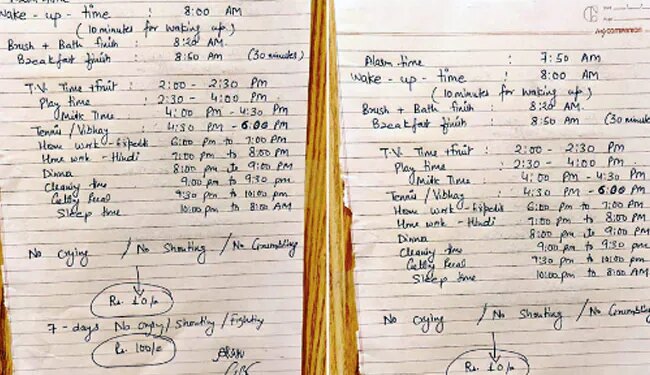 Wake - up - time : 8:00 AM
(10 minutes for waking up)
Brush + Bath finish : 8:20 AM
Breakfast finish : 8:50 AM (30 minutes)
T.V. Time + fruit : 2:00 - 2:30 Pm
Play time : 2:30 - 4:00 Pm
Milk Time : 4:00 Pm - 4:30 Pm
Tennis / Vibhay : 4:30 Pm - 6:00 Pm
Home work - : 6:00 Pm to 7:00 Pm
Home work - Hindi : 7:00 Pm to 8:00 Pm
8:00 pm to 9:00 PM
Cleaning time 9:00 pm to 9:30 pm
9:30 pm to 10:00 pm
Sleep time 10:00 pm to 8:00 AM
No Crying / No Shouting / No Grumbling
Rs. 10/-
7 - days No Crying / Shouting / Fighting
Rs. 100/-
Alarm time : 7:50 AM
Wake - up - time : 8:00 AM
(10 minutes for waking up)
Brush + Bath finish : 8:20 AM
Breakfast finish : 8:50 AM (30 minutes
T.V. Time + fruit : 2:00 - 2:30 Pm
Play time : 2:30 - 4:00 Pm
Milk Time : 4:00 Pm - 4:30 Pm
Tennis / Vibhay : 4:30 Pm - 6:00 Pm
Home work - : 6:00 Pm to 7:00 Pm
Home work - Hindi : 7:00 Pm to 8:00 Pm
8:00 pm to 9:00 PM
Cleaning time 9:00 pm to 9:30 pm
9:30 pm to 10:00 pm
Sleep time 10:00 pm to 8:00 AM
No Crying / No Shouting / No Grumbling
Rs. 10/-